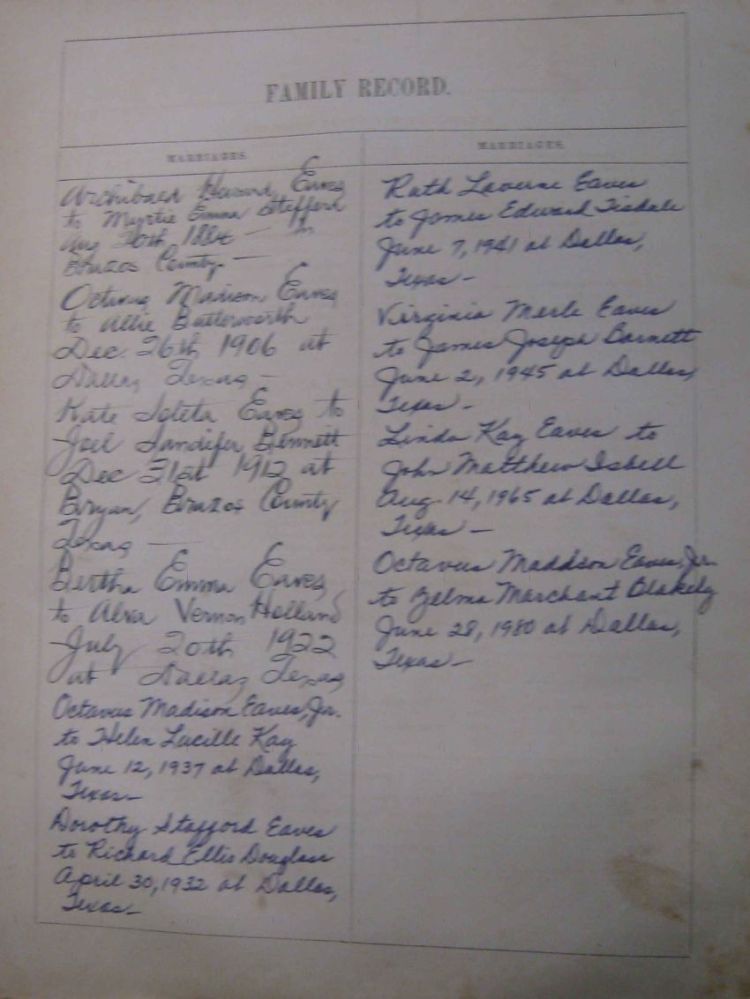 FAMILY RECORD.
MARRIAGES.
Archibald Howard Eaves
to Myrtie Emma Stafford
Aug 20th 1884 — in
Brazos County. —
Octavus Madison Eaves
to Allie Butterworth
Dec. 26th 1906 at
Dallas Texas —
Kate Toleta Eaves to
Joel Sandifer Bennett
Dec 31st 1912 at
Bryan, Brazos County
Texas —
Bertha Emma Eaves
to Alva Vernon Holland
July 20th 1922
at Dallas Texas
Octavus Madison Eaves, Jr.
to Helen Lucille Kay
June 12, 1937 at Dallas,
Texas —
Dorothy Stafford Eaves
to Richard Ellis Douglass
April 30, 1932 at Dallas,
Texas —
MARRIAGES.
Ruth Laverne Eaves
to James Edward Tisdale
June 7, 1941 at Dallas,
Texas —
Virginia Merle Eaves
to James Joseph Barnett
June 2, 1945 at Dallas,
Texas —
Linda Kay Eaves to
John Matthew Isbell
Aug. 14, 1965 at Dallas,
Texas —
Octavus Maddson Eaves, Jr.
to Zelma Marchant Blakely
June 28, 1980 at Dallas,
Texas —